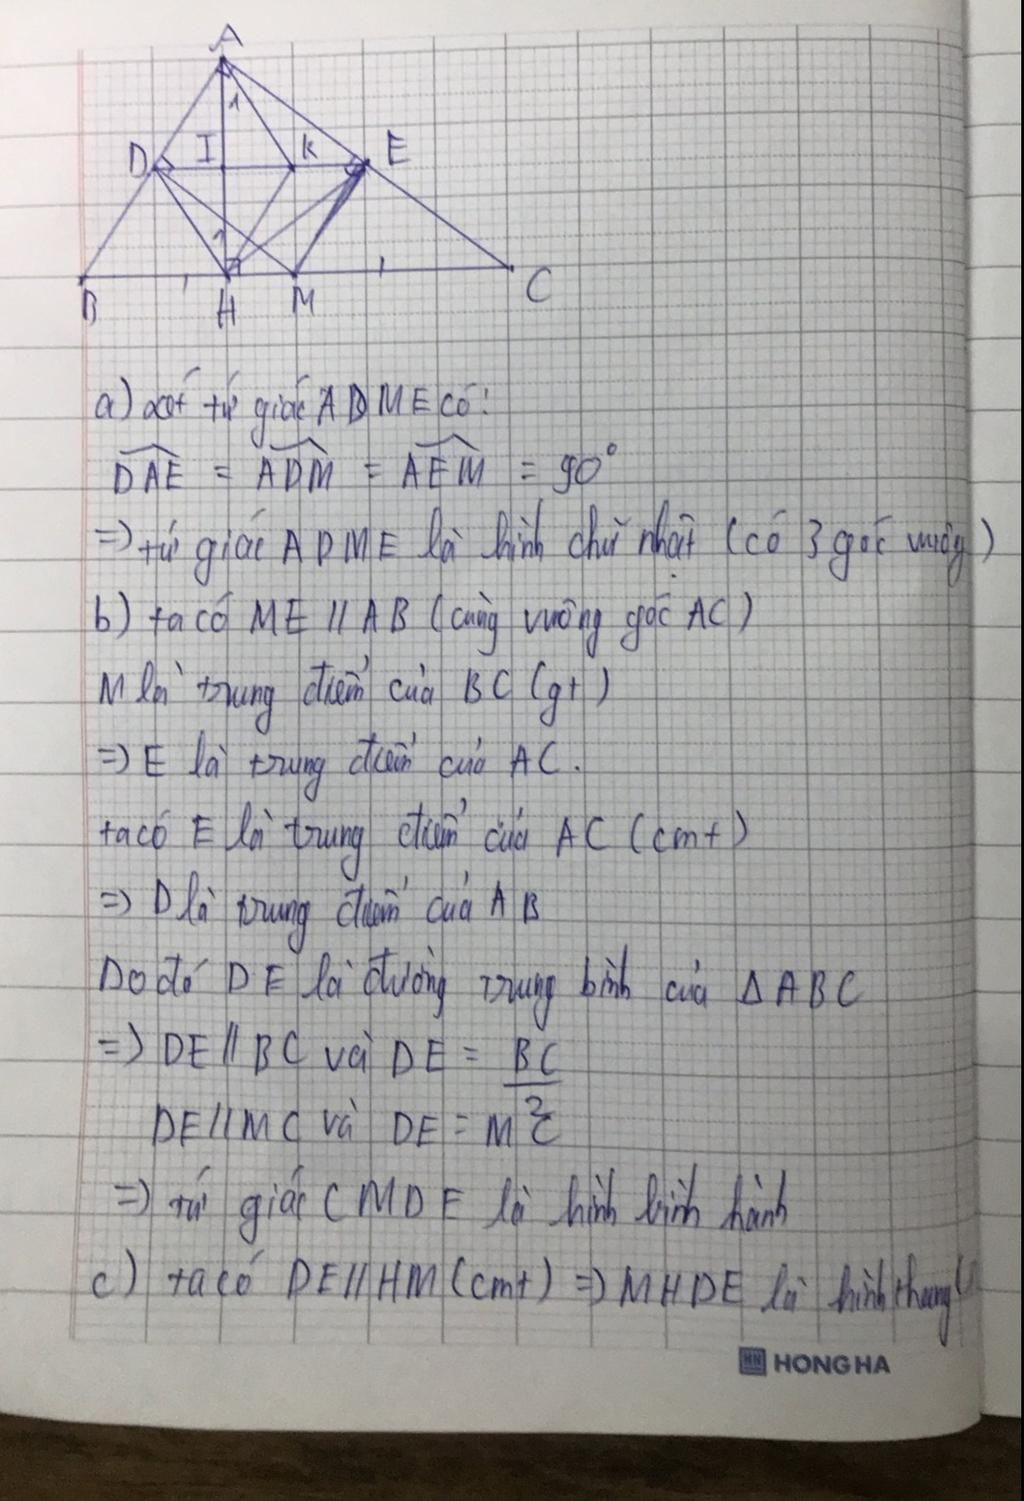 A
1
D I K E
1
B H M C
a) xét tứ giác ADME có:
DAE = ADM = AEM = 90°
=> tứ giác ADME là hình chữ nhật (có 3 góc vuông)
b) ta có ME // AB (cùng vuông góc AC)
M là trung điểm của BC (gt)
=> E là trung điểm của AC.
ta có E là trung điểm của AC (cmt)
=> D là trung điểm của AB
Do đó DE là đường trung bình của Δ ABC
=> DE // BC và DE = BC/2
DE // MC và DE = MC
=> tứ giác CMDE là hình bình hành
c) ta có DE // HM (cmt) => MHDE là hình thang (1)
HN HONG HA